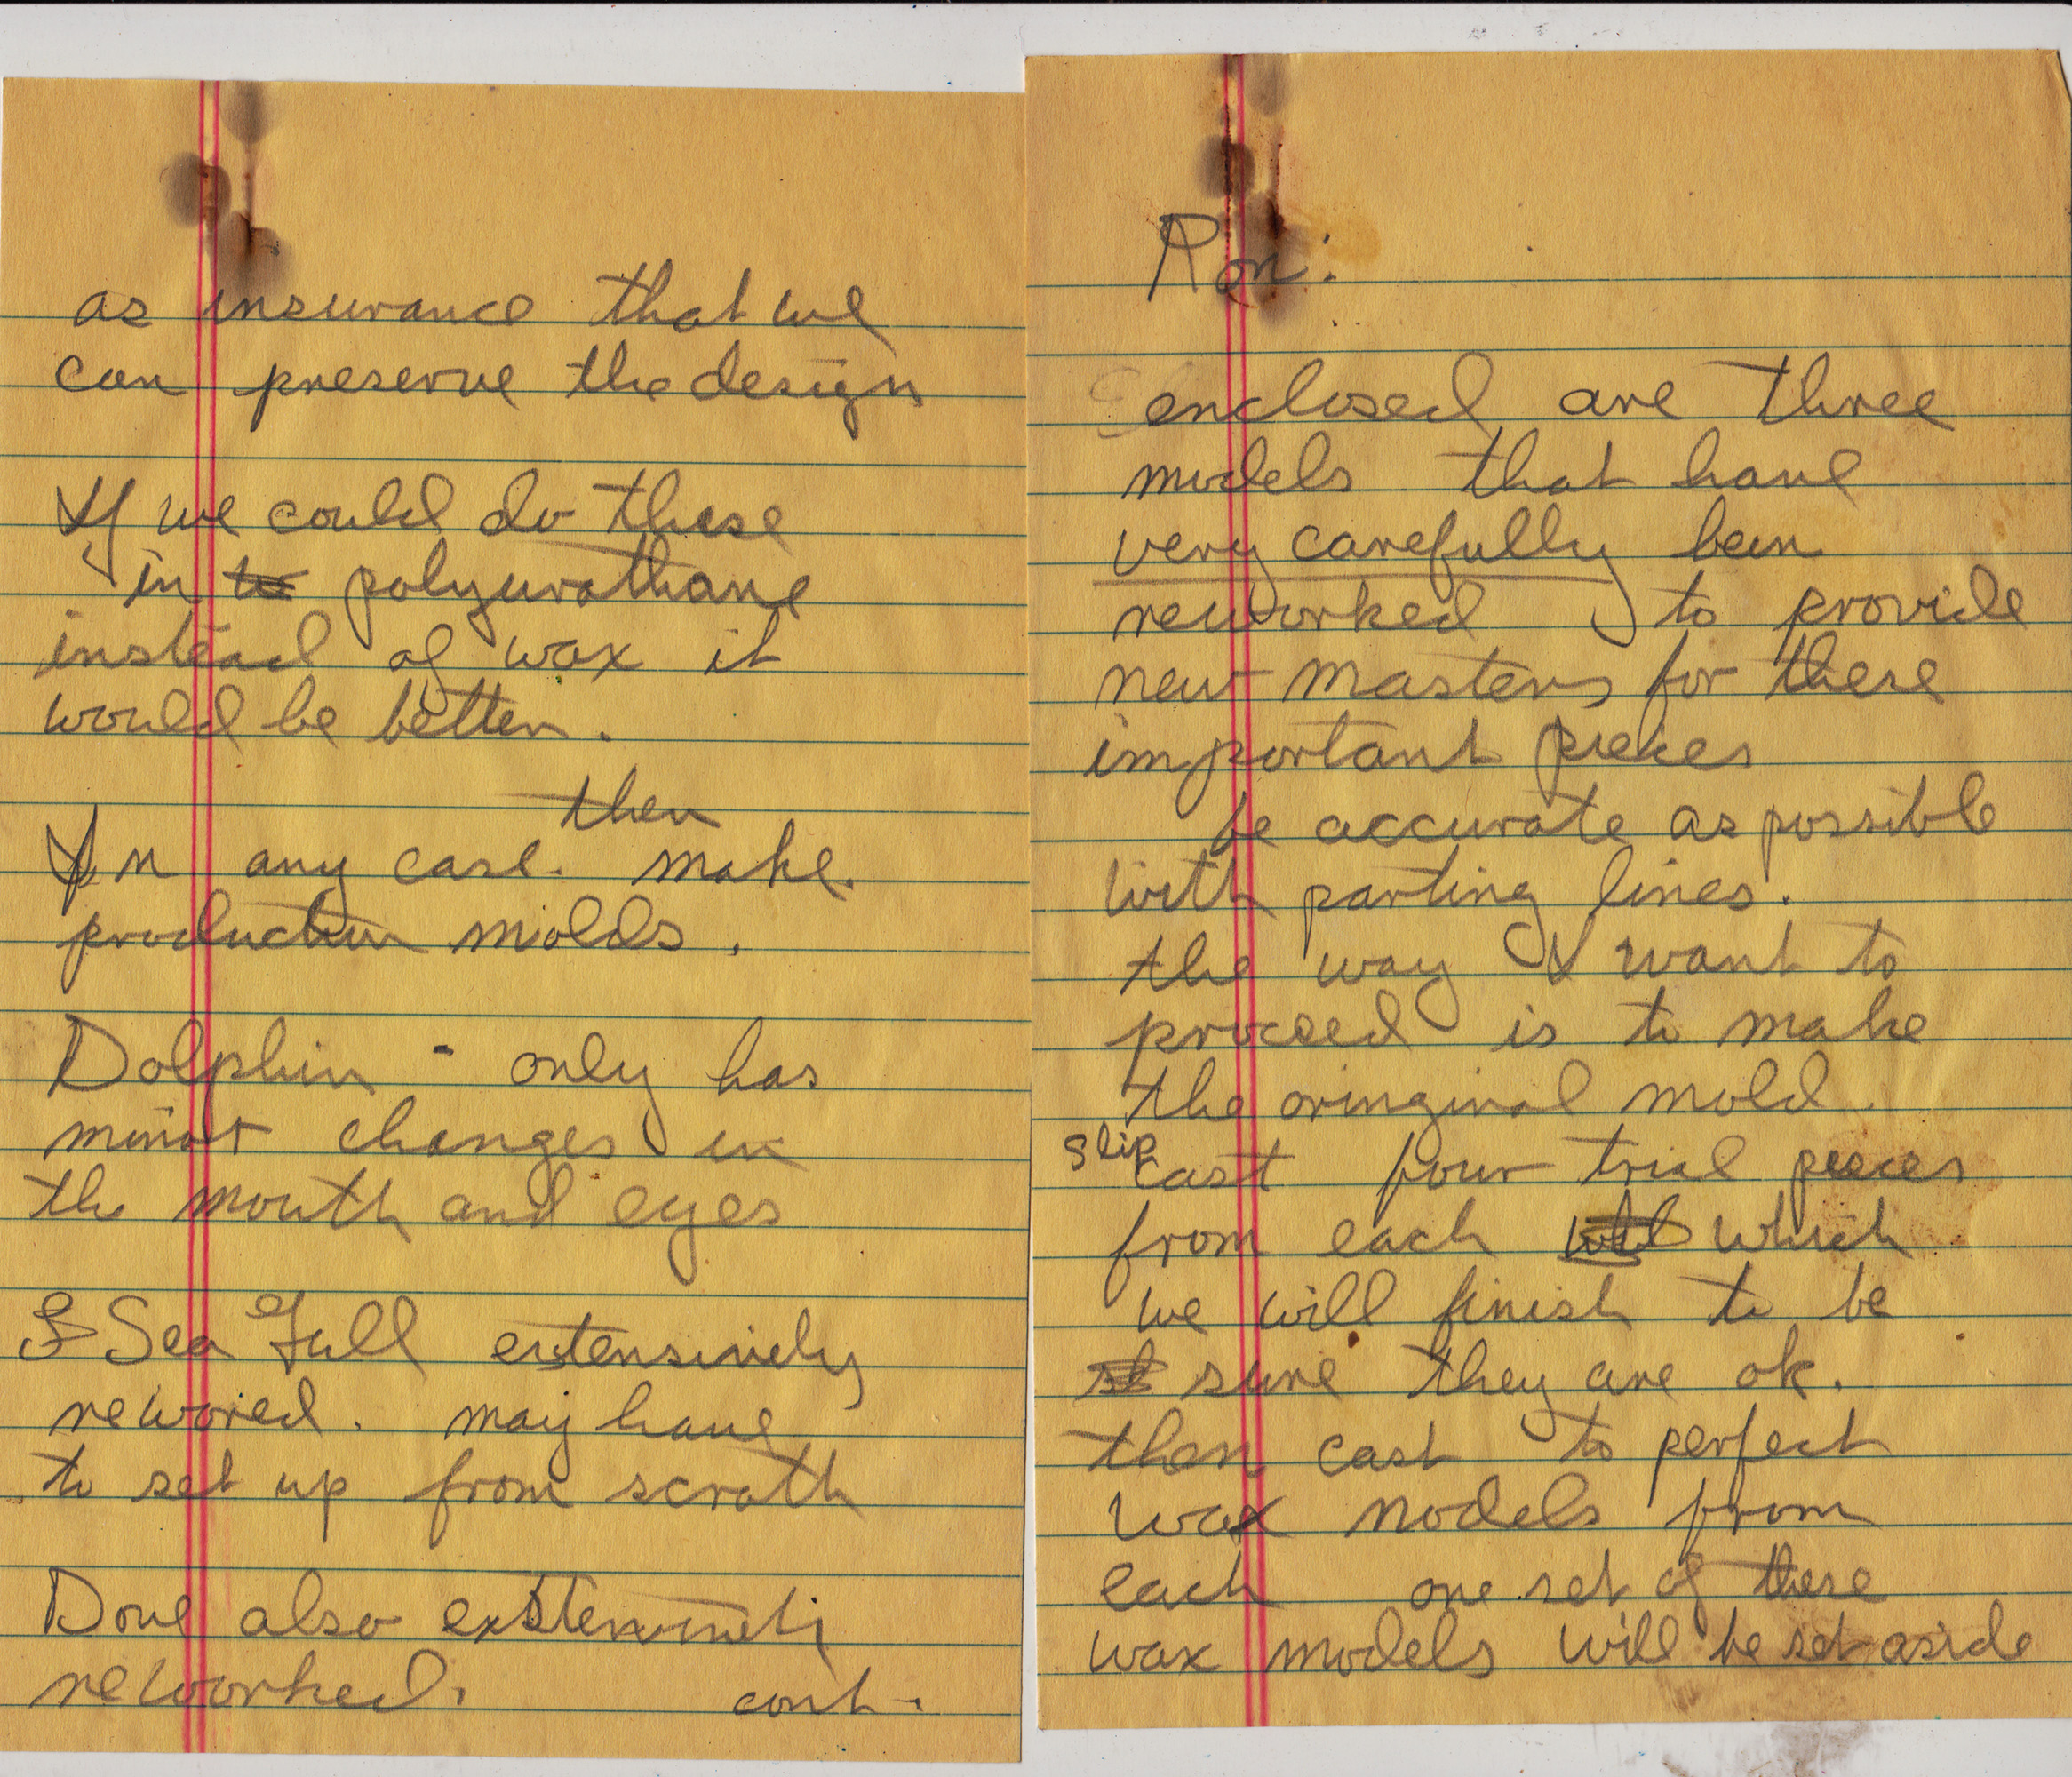 Ron:
enclosed are three
models that have
very carefully been
reworked to provide
new masters for these
important pieces
be accurate as possible
with parting lines.
the way I want to
proceed is to make
the oringinal mold.
slip
cast four trial pieces
from each which
we will finish to be
sure they are ok.
then cast to perfect
wax models from
each one set of these
wax models will be set aside
as insurance that we
can preserve the design
If we could do these
in polyurathane
instead of wax it
would be better.
then
In any case. make
production molds.
Dolphin - only has
minor changes in
the mouth and eyes
Sea Gull extensively
rewored. may have
to set up from scrath
Dove also
reworked. cont.